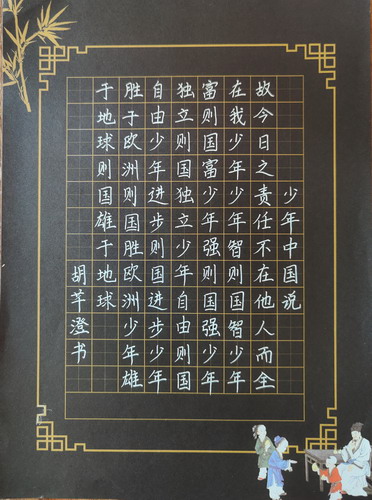 少年中国说
故今日之责任不在他人而全
在我少年少年智则国智少年
富则国富少年强则国强少年
独立则国独立少年自由则国
自由少年进步则国进步少年
胜于欧洲则国胜欧洲少年雄
于地球则国雄于地球
胡芊澄书